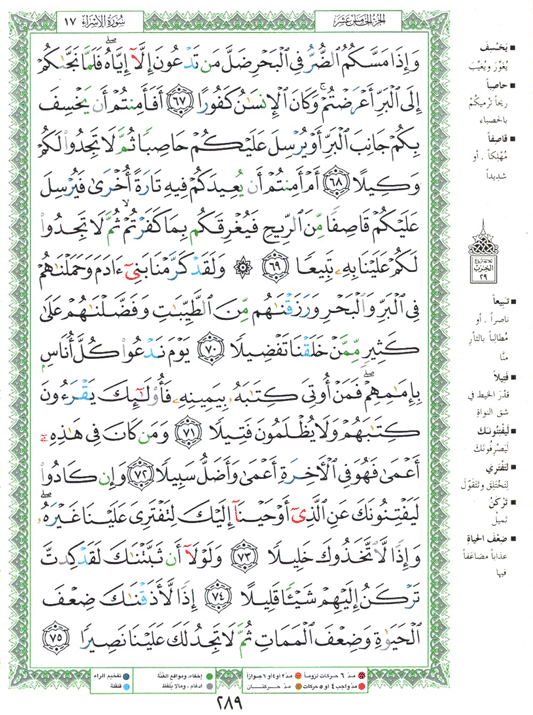 سُورَةُ الإِسْرَاءِ ١٧
الجزء الخامس عشر
وَإِذَا مَسَّكُمُ الضُّرُّ فِي الْبَحْرِ ضَلَّ مَن تَدْعُونَ إِلَّا إِيَّاهُ ۖ فَلَمَّا نَجَّىٰكُمْ
إِلَى الْبَرِّ أَعْرَضْتُمْ ۚ وَكَانَ الْإِنسَٰنُ كَفُورًا ٦٧ أَفَأَمِنتُمْ أَن يَخْسِفَ
بِكُمْ جَانِبَ الْبَرِّ أَوْ يُرْسِلَ عَلَيْكُمْ حَاصِبًا ثُمَّ لَا تَجِدُوا لَكُمْ
وَكِيلًا ٦٨ أَمْ أَمِنتُمْ أَن يُعِيدَكُمْ فِيهِ تَارَةً أُخْرَىٰ فَيُرْسِلَ
عَلَيْكُمْ قَاصِفًا مِّنَ الرِّيحِ فَيُغْرِقَكُم بِمَا كَفَرْتُمْ ۙ ثُمَّ لَا تَجِدُوا
لَكُمْ عَلَيْنَا بِهِۦ تَبِيعًا ٦٩ ۞ وَلَقَدْ كَرَّمْنَا بَنِىٓ ءَادَمَ وَحَمَلْنَٰهُمْ
فِي الْبَرِّ وَالْبَحْرِ وَرَزَقْنَٰهُم مِّنَ الطَّيِّبَٰتِ وَفَضَّلْنَٰهُمْ عَلَىٰ
كَثِيرٍ مِّمَّنْ خَلَقْنَا تَفْضِيلًا ٧٠ يَوْمَ نَدْعُوا كُلَّ أُنَاسٍ
بِإِمَٰمِهِمْ ۖ فَمَنْ أُوتِيَ كِتَٰبَهُۥ بِيَمِينِهِۦ فَأُولَٰٓئِكَ يَقْرَءُونَ
كِتَٰبَهُمْ وَلَا يُظْلَمُونَ فَتِيلًا ٧١ وَمَن كَانَ فِي هَٰذِهِۦٓ
أَعْمَىٰ فَهُوَ فِي الْآخِرَةِ أَعْمَىٰ وَأَضَلُّ سَبِيلًا ٧٢ وَإِن كَادُوا
لَيَفْتِنُونَكَ عَنِ الَّذِىٓ أَوْحَيْنَآ إِلَيْكَ لِتَفْتَرِىَ عَلَيْنَا غَيْرَهُۥ ۖ
وَإِذًا لَّاتَّخَذُوكَ خَلِيلًا ٧٣ وَلَوْلَآ أَن ثَبَّتْنَٰكَ لَقَدْ كِدتَّ
تَرْكَنُ إِلَيْهِمْ شَيْـًٔا قَلِيلًا ٧٤ إِذًا لَّأَذَقْنَٰكَ ضِعْفَ
الْحَيَوٰةِ وَضِعْفَ الْمَمَاتِ ثُمَّ لَا تَجِدُ لَكَ عَلَيْنَا نَصِيرًا ٧٥
يَخْسِفَ
يُغَوِّرَ ويُغَيِّبَ
حاصِباً
ريحاً تَرميكُمْ
بالحصباء
قاصِفاً
مُهْلِكاً . أو
شديداً
الحزب
٢٩
تَبيعاً
ناصراً . أو
مُطالِباً بالثأر
منَّا
فتيلاً
قدْرَ الخيط في
شق النواة
ليفتنونك
لَيَصْرِفُونَكَ
لتفتري
لتَختَلِق وتتقوَّل
تركنُ
تميلُ
ضعْفَ الحياة
عذاباً مضاعفاً
فيها
مدّ ٦ حركات لزوماً مدّ ٢ أو ٤ أو ٦ جوازاً إخفاء، ومواقع الغُنَّة تفخيم الراء
مدّ واجب ٤ أو ٥ حركات مدّ حركتان ادغام، وما لا يُلفظ قلقلة
٢٨٩